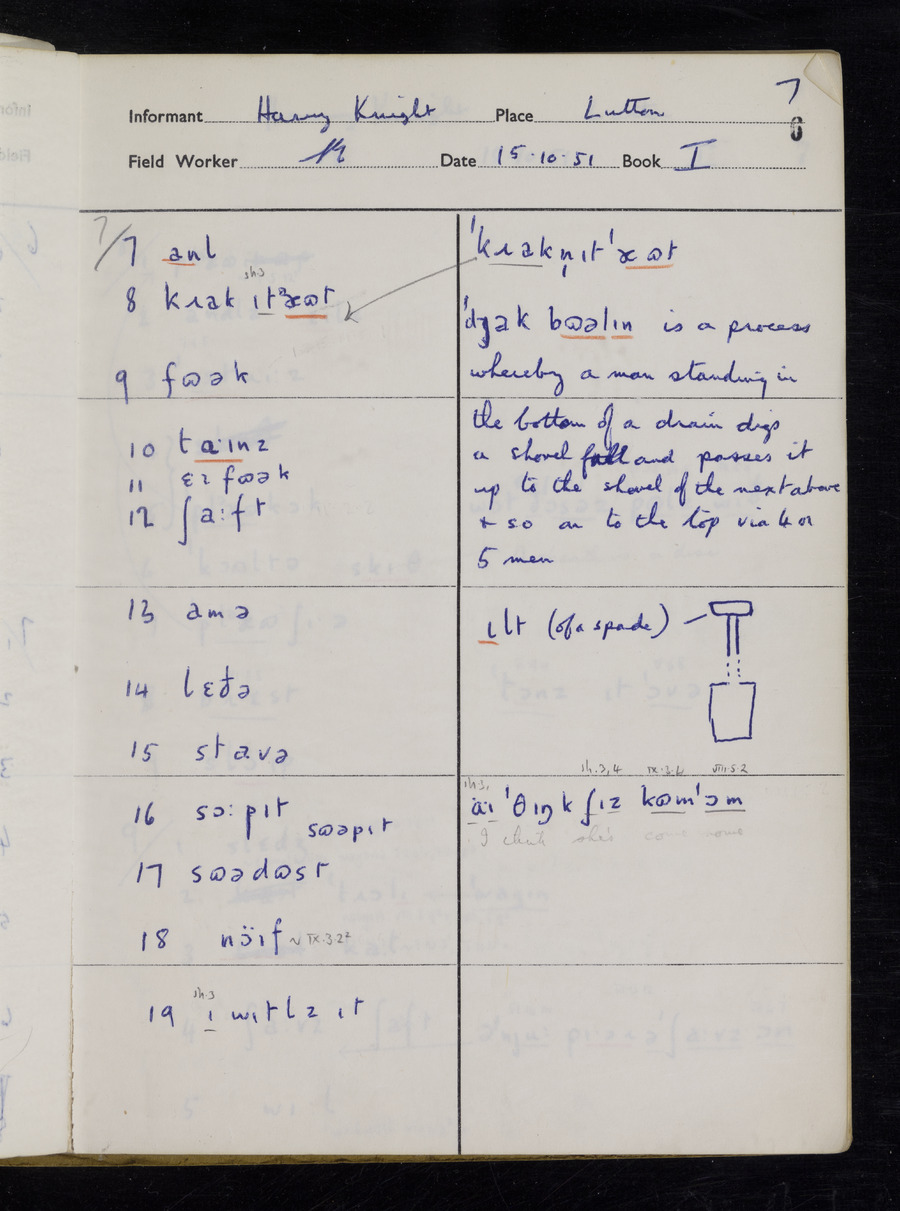 7
Informant Harry Knight Place Lutton
6
Field Worker Date 15·10·51 Book I
7/7 anl
8 kɹak ɪtᵊæʊt
sh.3
9 fʊək
10 ta:ɪnz
11 ɛz fʊək
12 ʃa:ft
13 amə
14 lɛðə
15 stavə
16 sɔ:pɪt
sʊəpɪt
17 sʊədʊst
18 nɔ̈ɪf ~ IX·3·2²
sh.3
19 ɪ wɪtlz ɪt
ˈkɹakn̩ ɪtˈæʊt
ˈdʒak bʊəlɪn is a process
whereby a man standing in
the bottom of a drain digs
a shovel full and passes it
up to the shovel of the next above
+ so on to the top via 4 or
5 men
ɪlt (of a spade)
sh.3, sh.3,4 IX·3·4 VIII·5·2
äɪ ˈθɪŋk ʃɪz kʊmˈɔm
I think she's come home